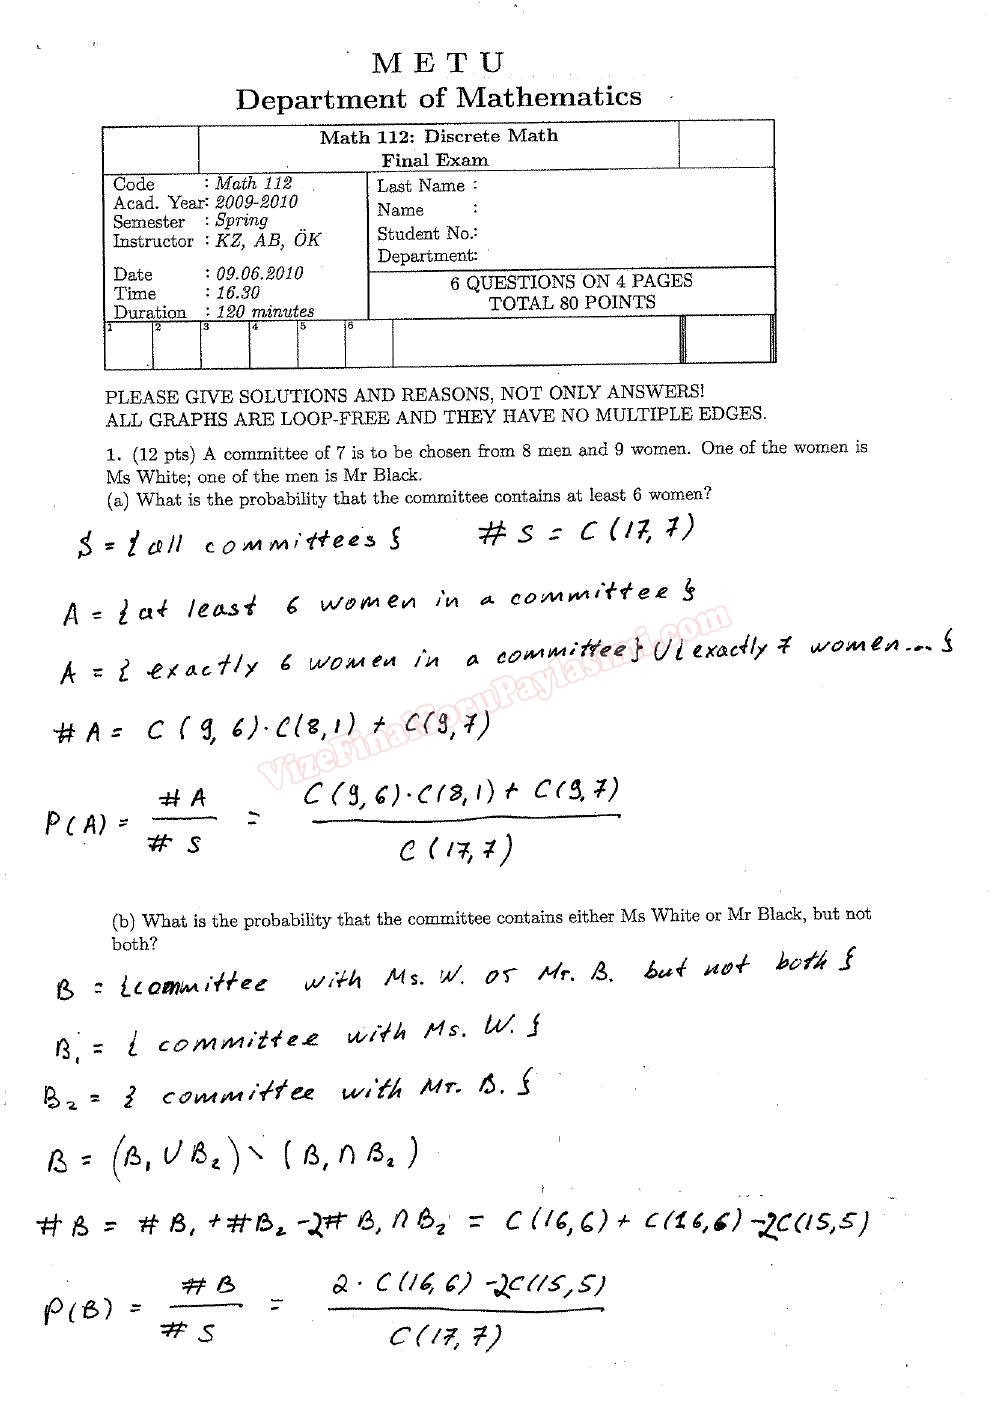 M E T U
Department of Mathematics
Math 112: Discrete Math
Final Exam
Code : Math 112
Acad. Year: 2009-2010
Semester : Spring
Instructor : KZ, AB, ÖK
Date : 09.06.2010
Time : 16.30
Duration : 120 minutes
Last Name :
Name :
Student No.:
Department:
6 QUESTIONS ON 4 PAGES
TOTAL 80 POINTS
1 2 3 4 5 6
PLEASE GIVE SOLUTIONS AND REASONS, NOT ONLY ANSWERS!
ALL GRAPHS ARE LOOP-FREE AND THEY HAVE NO MULTIPLE EDGES.
1. (12 pts) A committee of 7 is to be chosen from 8 men and 9 women. One of the women is
Ms White; one of the men is Mr Black.
(a) What is the probability that the committee contains at least 6 women?
S = { all committees } # S = C (17, 7)
A = { at least 6 women in a committee }
A = { exactly 6 women in a committee } ∪ { exactly 7 women ... }
# A = C ( 9, 6) · C(8, 1) + C(9, 7)
P(A) = # A / # S = C(9, 6) · C(8, 1) + C(9, 7) / C (17, 7)
VizeFinalSoruPaylasimi.com
(b) What is the probability that the committee contains either Ms White or Mr Black, but not
both?
B = { committee with Ms. W. or Mr. B. but not both }
B₁ = { committee with Ms. W. }
B₂ = { committee with Mr. B. }
B = (B₁ ∪ B₂) \ ( B₁ ∩ B₂ )
# B = # B₁ + # B₂ - 2# B₁ ∩ B₂ = C (16, 6) + C(16, 6) - 2C(15, 5)
P(B) = # B / # S = 2 · C (16, 6) - 2C(15, 5) / C(17, 7)